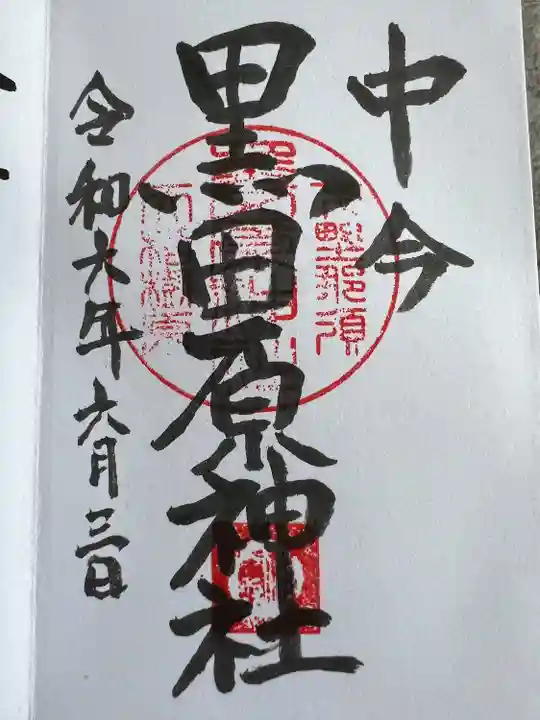 中今
黒田原神社
令和六年六月三日